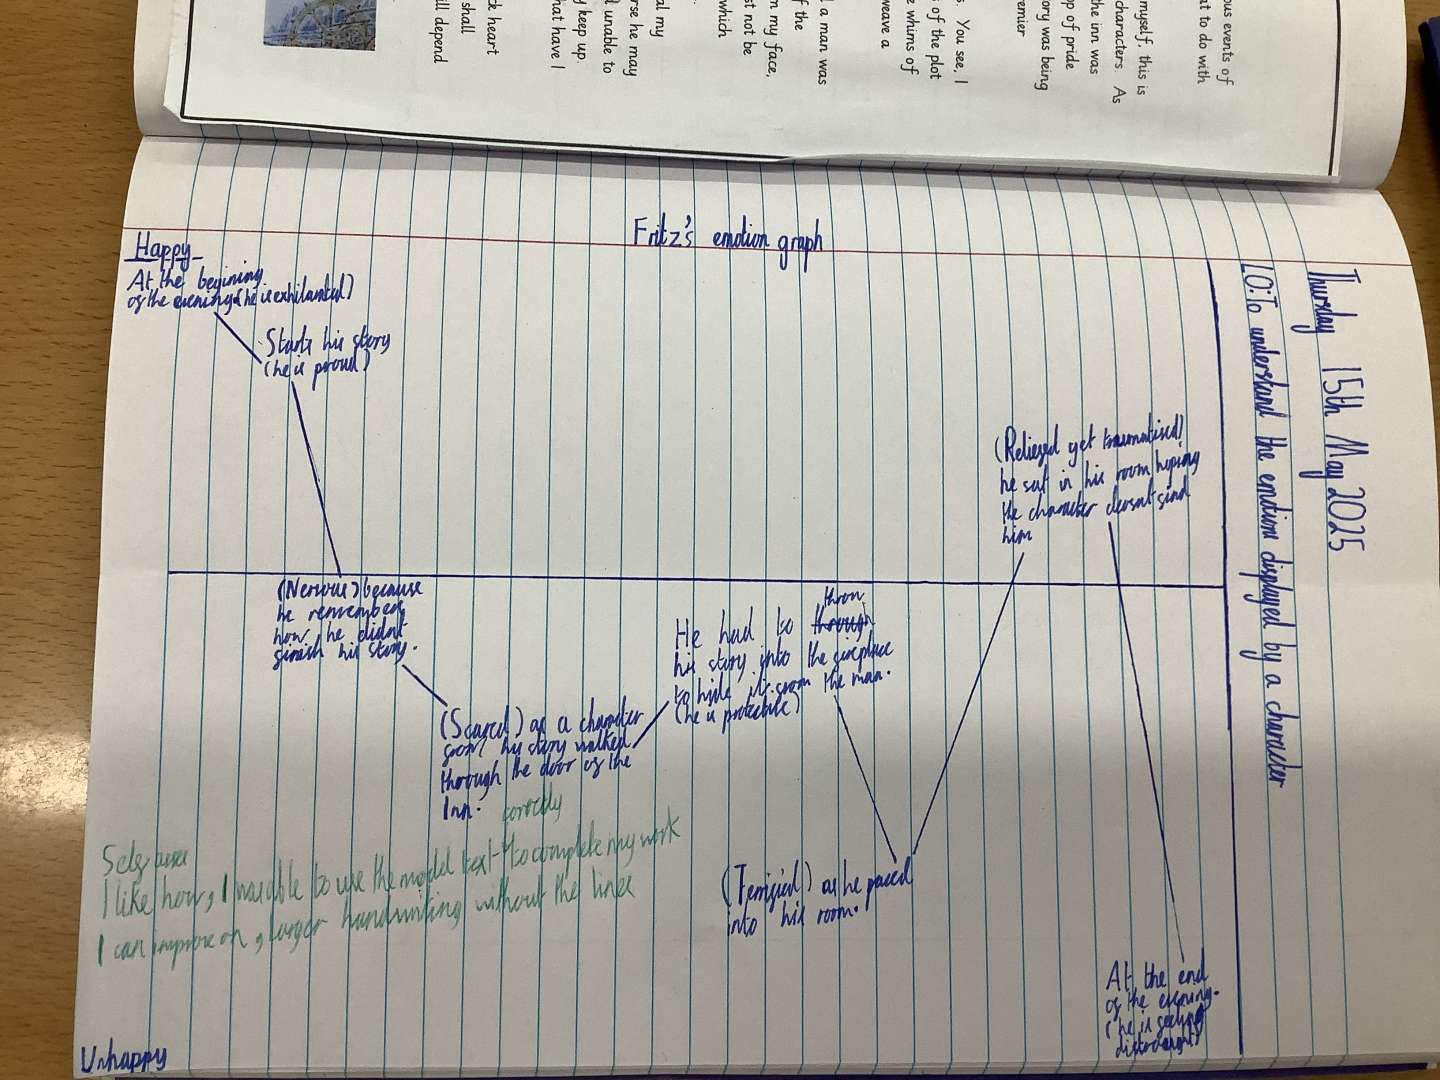 ous events of
at to do with
myself, this is
characters. As
the inn was
op of pride
ory was being
remier
s. You see, I
s of the plot
e whims of
weave a
l a man was
f the
m my face,
st not be
which
al my
rse he may
l unable to
y keep up.
hat have I
ck heart
shall
ill depend
Thursday 15th May 2025
LO: To understand the emotions displayed by a character
Fritz's emotion graph
Happy
At the begining
of the evening (he is exhilarated)
Starts his story
(he is proud)
(Nervous) because
he remembers
how he didnt
finish his story.
(Scared) as a character
from his story walked
through the door of the
Inn.
He had to through
thron
his story into the fireplace
to hide it from the man.
(he is protective)
(Terrified) as he paced
into his room.
(Relieved yet traumatised)
he sat in his room hoping
the character doesnt find
him
At the end
of the evening.
(he is feeling
distraught)
Unhappy
Self
correctly
I like how, I was able to use the model text to complete my work
I can improve on, larger handwriting without the lines